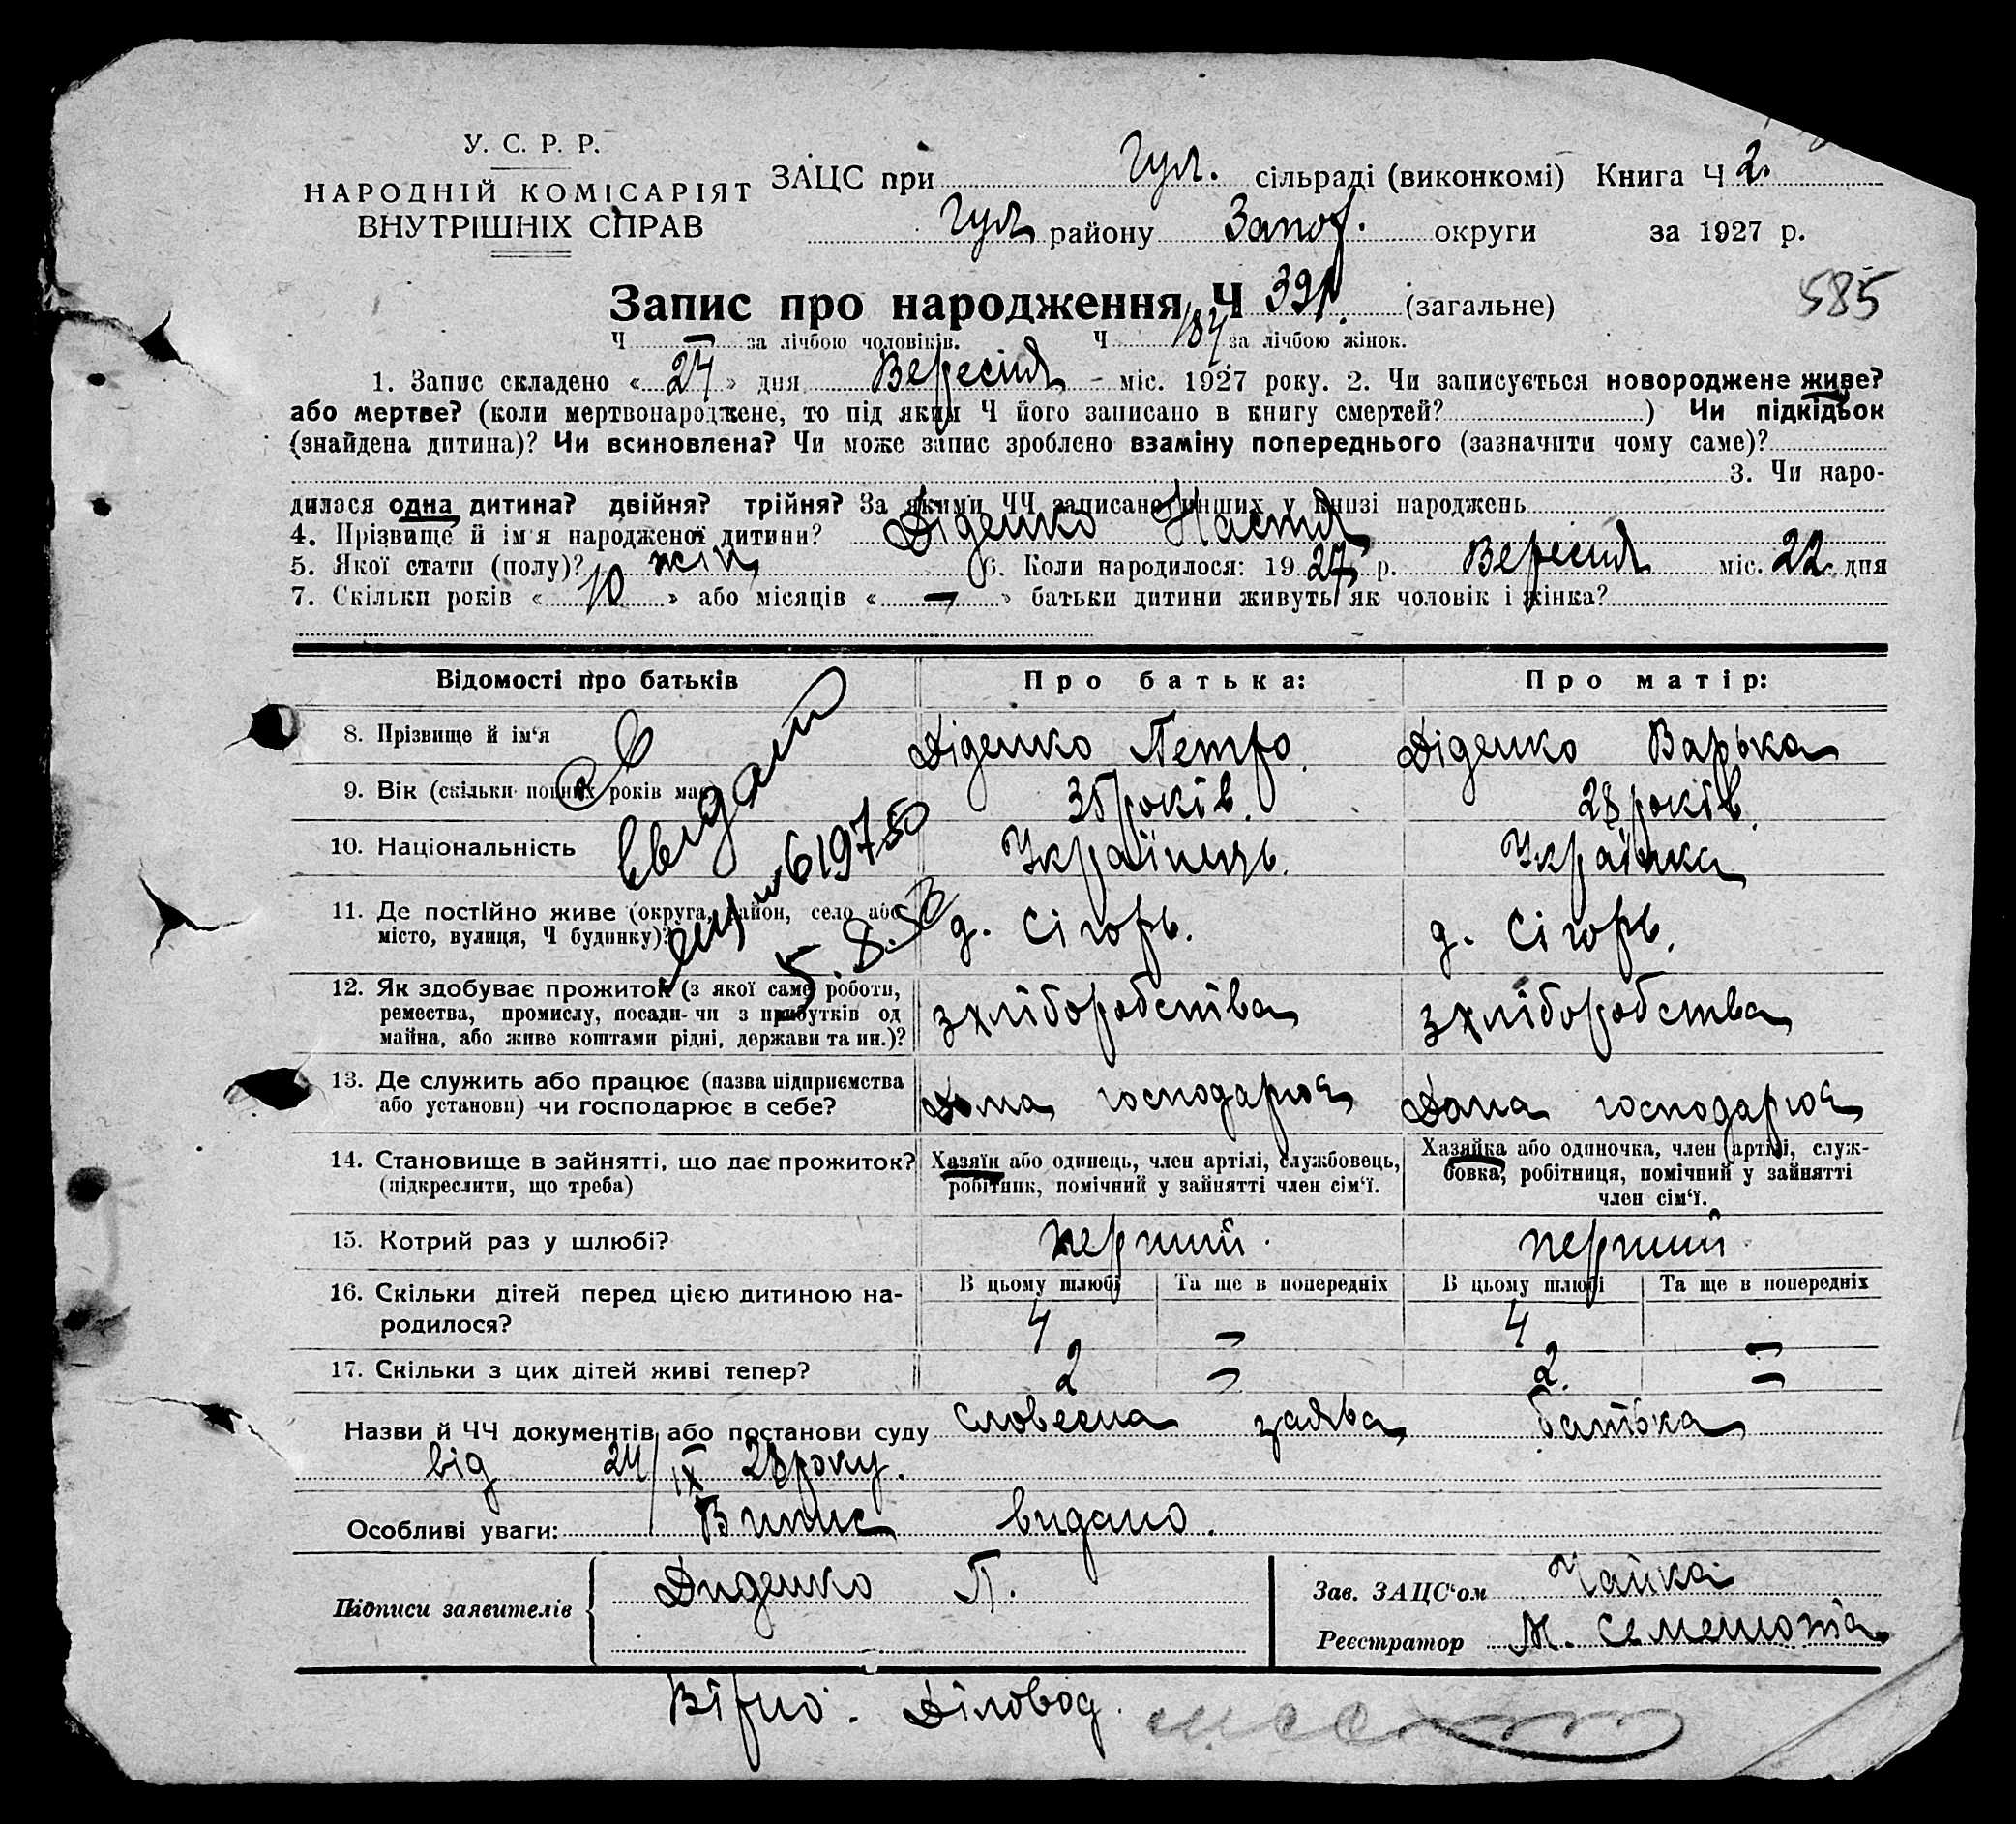 У. С. Р. Р.
НАРОДНІЙ КОМІСАРІЯТ
ВНУТРІШНІХ СПРАВ
ЗАЦС при Гул. сільраді (виконкомі) Книга Ч 2.
Гул району Запор. округи за 1927 р.
585
Запис про народження Ч 391. (загальне)
Ч — за лічбою чоловіків. Ч 184 за лічбою жінок.
1. Запис складено « 24 » дня Вересня міс. 1927 року. 2. Чи записується новороджене живе?
або мертве? (коли мертвонароджене, то під яким Ч його записано в книгу смертей? ) Чи підкідьок
(знайдена дитина)? Чи всиновлена? Чи може запис зроблено взаміну попереднього (зазначити чому саме)?
3. Чи наро-
дилася одна дитина? двійня? трійня? За якими ЧЧ записано инших у книзі народжень
4. Прізвище й ім'я народженої дитини? Діденко Настя
5. Якої стати (полу)? жін 6. Коли народилося: 1927 р. Вересня міс. 22 дня
7. Скільки років « 10 » або місяців « — » батьки дитини живуть як чоловік і жінка?
Відомості про батьків Про батька: Про матір:
8. Прізвище й ім'я Діденко Петро. Діденко Варька
9. Вік (скільки повних років має) 35 років. 28 років.
10. Національність Українець. Українка
11. Де постійно живе (округа, район, село або
місто, вулиця, Ч будинку)? д. Сігорь. д. Сігорь.
619750
5.8.50
12. Як здобуває прожиток (з якої саме роботи,
ремества, промислу, посади чи з прибутків од
майна, або живе коштами рідні, держави та ин.)? з хліборобства з хліборобства
13. Де служить або працює (назва підприємства
або установи) чи господарює в себе? Дома господарює Дома господарює
14. Становище в зайнятті, що дає прожиток?
(підкреслити, що треба)
Хазяїн або одинець, член артілі, службовець,
робітник, помічний у зайнятті член сім'ї.
Хазяйка або одиночка, член артілі, служ-
бовка, робітниця, помічний у зайнятті
член сім'ї.
15. Котрий раз у шлюбі? перший. перший.
В цьому шлюбі Та ще в попередніх В цьому шлюбі Та ще в попередніх
16. Скільки дітей перед цією дитиною на-
родилося? 4 — 4 —
17. Скільки з цих дітей живі тепер? 2 — 2. —
Назви й ЧЧ документів або постанови суду словесна заява батька
від 24/IX 28 року.
Особливі уваги: Випис видано.
Підписи заявителів Диденко П.
Зав. ЗАЦС'ом Чайка
Реєстратор М. Семенюта
Вірно. Діловод.